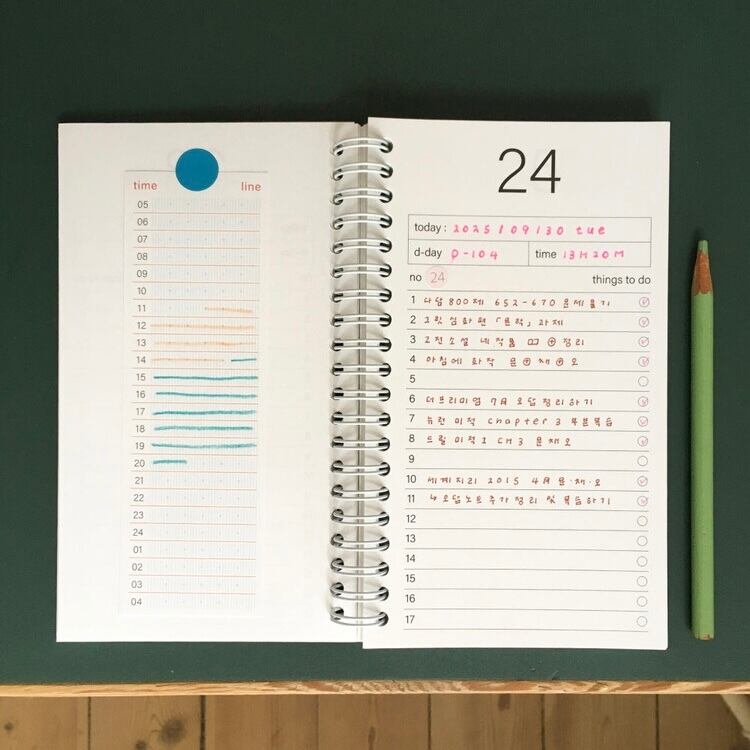 time line
05
06
07
08
09
10
11
12
13
14
15
16
17
18
19
20
21
22
23
24
01
02
03
04
24
today : 2025/09/30 tue
d-day D-104 time 13H 20M
no 24 things to do
1 나답800제 652-670
2 심화편 「문학」 과제
3 고전소설 네 작품 ⊕ 정리
4 아침에 화작 문⊕채⊕오
5
6 더프리미엄 7月 오답정리하기
7 뉴런 미적 chapter 3 복습
8 드릴 미적1 CH3 문채오
9
10 세계지리 2015 4月 문·채·오
11 ㄴ오답노트 추가정리 및 복습하기
12
13
14
15
16
17